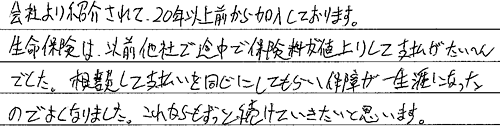 会社より紹介されて、20年以上前から加入しております。
生命保険は、以前他社で途中で保険料が値上りして支払がたいへん
でした。相談して支払いを同じにしてもらい保障が一生涯になった
のでよくなりました。これからもずっと続けていきたいと思います。